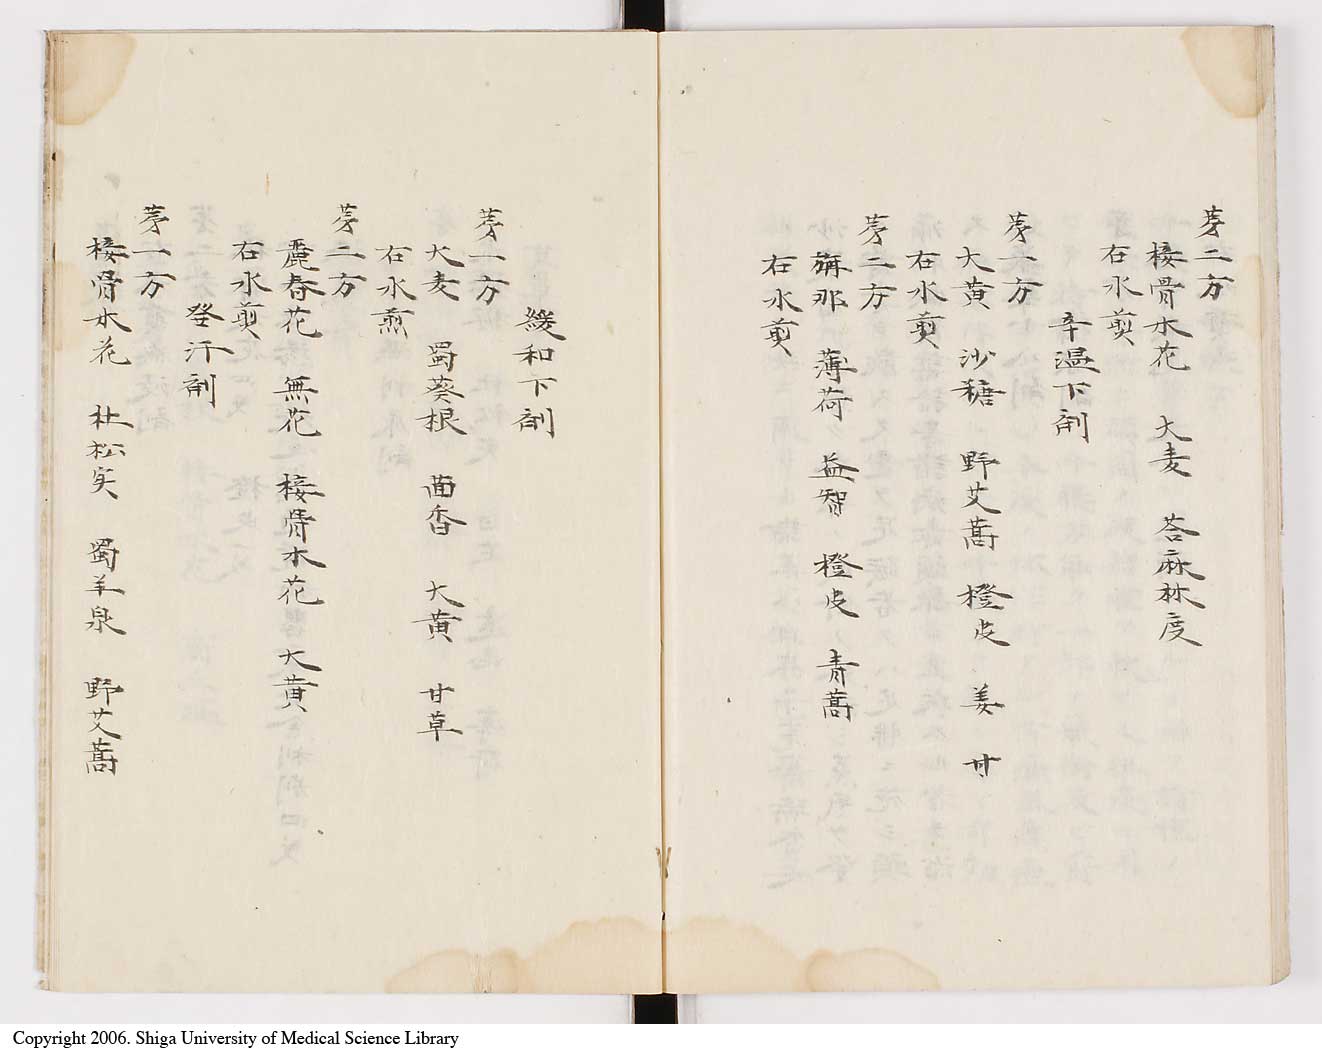 芽二方
接骨木花　大麦　荅麻林度
右水煎
辛温下剤
芽一方
大黄　沙糖　野艾蒿　橙皮　姜　甘
右水煎
芽二方
旃那　薄荷　益智　橙皮　青蒿
右水煎
緩和下剤
芽一方
大麦　蜀葵根　茴香　大黄　甘草
右水煎
芽二方
麗春花　無花　接骨木花　大黄
右水煎
発汗剤
芽一方
接骨木花　杜松実　蜀羊泉　野艾蒿
Copyright 2006. Shiga University of Medical Science Library